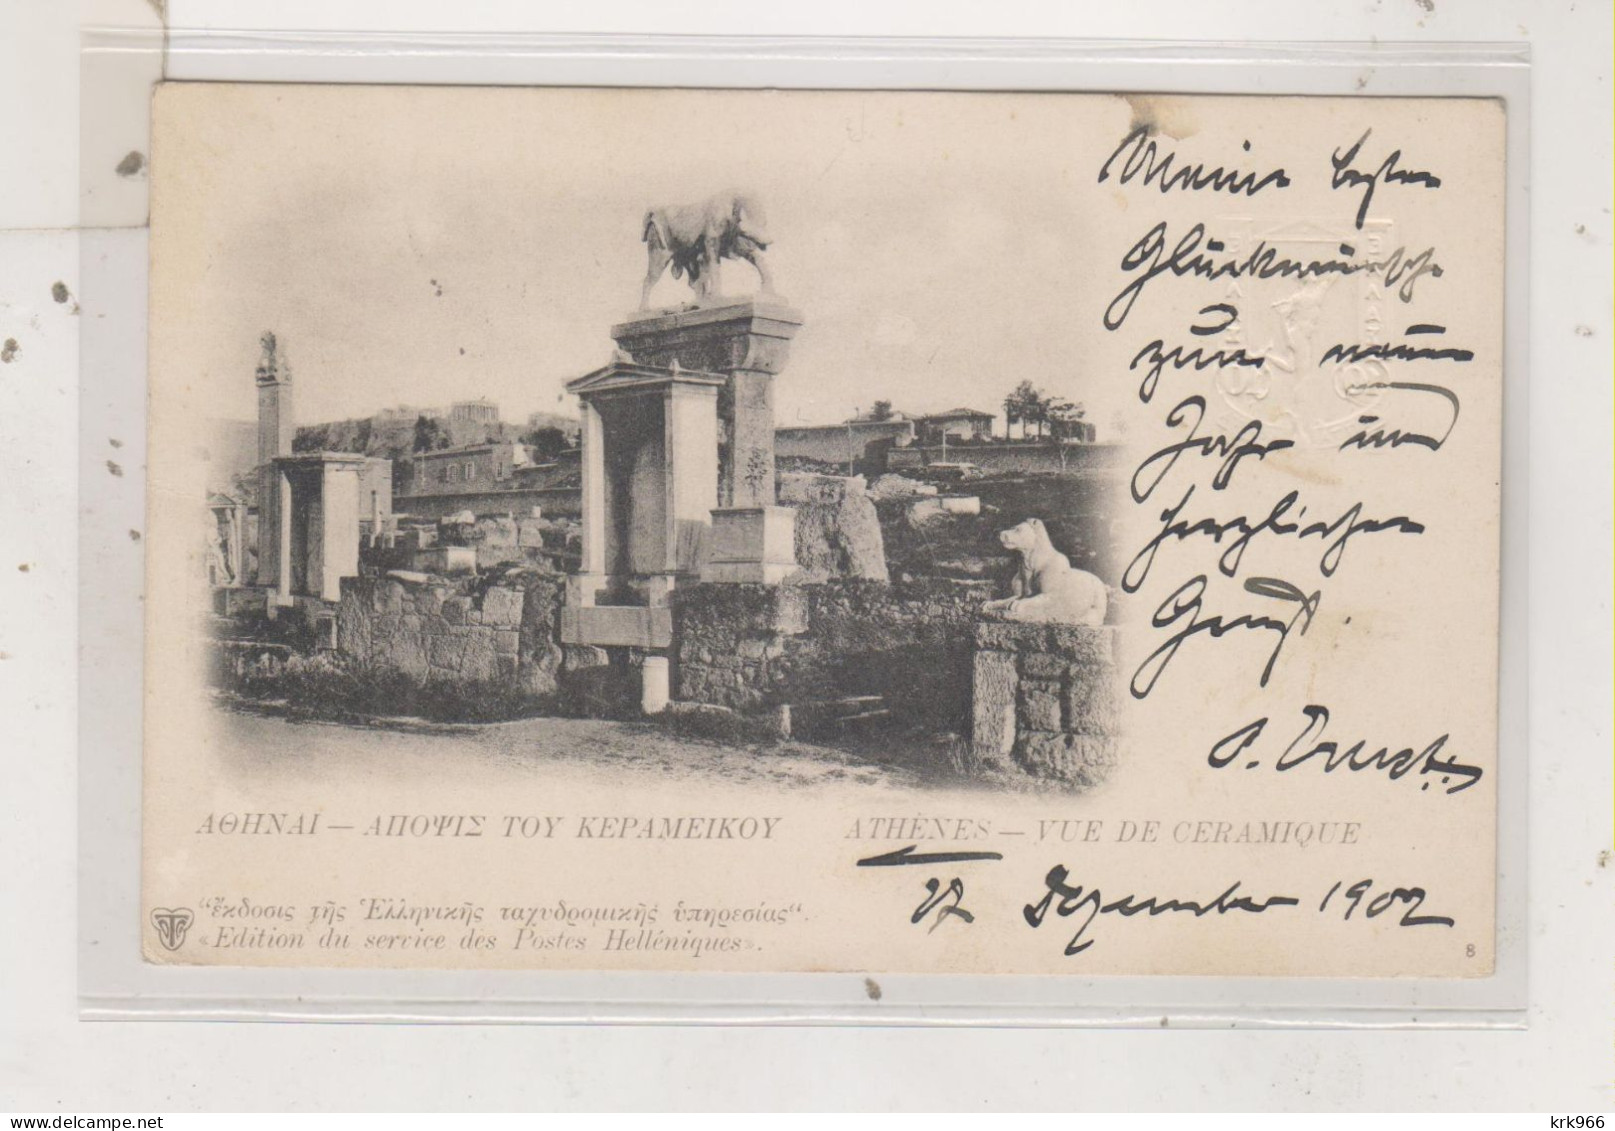 Meine besten
Glückwünsche
zum neuen
Jahr und
herzlichen
Gruß.
ΑΘΗΝΑΙ — ΑΠΟΨΙΣ ΤΟΥ ΚΕΡΑΜΕΙΚΟΥ
ATHÈNES — VUE DE CERAMIQUE
27 Dezember 1902
“ἔκδοσις τῆς Ἑλληνικῆς ταχυδρομικῆς ὑπηρεσίας“.
«Edition du service des Postes Helléniques».
8
krk966